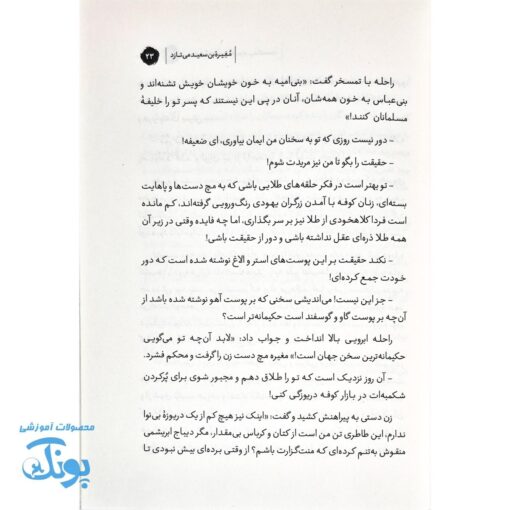 مُغیرة بن سعید می‌تازد
۲۳
راحله با تمسخر گفت: «بنی‌امیه به خون خویشان خویش تشنه‌اند و
بنی‌عباس به خون همه‌شان، آنان در پی این نیستند که پسر تو را خلیفهٔ
مسلمانان کنند!»
– دور نیست روزی که تو به سخنان من ایمان بیاوری، ای ضعیفه!
– حقیقت را بگو تا من نیز مریدت شوم!
– تو بهتر است در فکر حلقه‌های طلایی باشی که به مچ دست‌ها و پاهایت
بسته‌ای، زنان کوفه با آمدن زرگران یهودی رنگ‌ورویی گرفته‌اند، کم مانده
است فردا کلاهخودی از طلا نیز بر سر بگذاری. اما چه فایده وقتی در زیر آن
همه طلا ذره‌ای عقل نداشته باشی و دور از حقیقت باشی!
– نکند حقیقت بر این پوست‌های استر و الاغ نوشته شده است که دور
خودت جمع کرده‌ای!
– جز این نیست! می‌اندیشی سخنی که بر پوست آهو نوشته شده باشد از
آن‌چه بر پوست گاو و گوسفند است حکیمانه‌تر است؟
راحله ابرویی بالا انداخت و جواب داد: «لابد آن‌چه تو می‌گویی
حکیمانه‌ترین سخن جهان است!» مغیره مچ دست زن را گرفت و محکم فشرد.
– آن روز نزدیک است که تو را طلاق دهم و مجبور شوی برای پُرکردن
شکمبه‌ات در بازار کوفه دریوزگی کنی!
زن دستی به پیراهنش کشید و گفت: «اینک نیز هیچ کم از یک دریوزهٔ بی‌نوا
ندارم، این طاطری تن من است از کتان و کرباس بی‌مقدار، مگر دیباج ابریشمی
منقوش به‌تنم کرده‌ای که منت‌گزارت باشم؟ از وقتی برده‌ای بیش نبودی تا
محصولات آموزشی
پونک